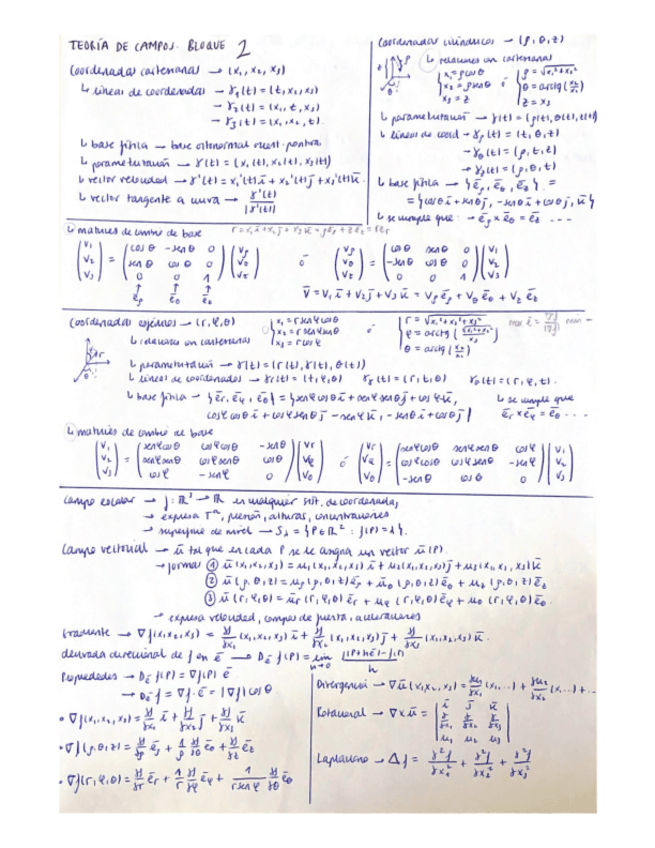 TEORÍA DE CAMPOS. BLOQUE 2
Coordenadas cartesianas → (x₁, x₂, x₃)
↳ líneas de coordenadas → γ₁(t) = (t, x₂, x₃)
→ γ₂(t) = (x₁, t, x₃)
→ γ₃(t) = (x₁, x₂, t).
↳ base física → base ortonormal
↳ parametrización → γ(t) = (x₁(t), x₂(t), x₃(t))
↳ vector velocidad → γ'(t) = x₁'(t) ī + x₂'(t) j̄ + x₃'(t) k̄.
↳ vector tangente a curva → γ'(t) / |γ'(t)|
Coordenadas cilíndricas → (ρ, θ, z)
↳ relaciones con cartesianas
x₁ = ρ cos θ
x₂ = ρ sen θ
x₃ = z
ó
ρ = √x₁² + x₂²
θ = arctg (x₂/x₁)
z = x₃
↳ parametrización → γ(t) = (ρ(t), θ(t), z(t))
↳ líneas de coord → γρ(t) = (t, θ, z)
→ γθ(t) = (ρ, t, z)
→ γz(t) = (ρ, θ, t)
↳ base física → {ēρ, ēθ, ēz} =
= {cos θ ī + sen θ j̄, -sen θ ī + cos θ j̄, k̄}
↳ se cumple que → ēρ × ēθ = ēz ...
↳ matrices de cambio de base
(v₁ v₂ v₃) = (cos θ -sen θ 0; sen θ cos θ 0; 0 0 1) (vρ vθ vz) ó (vρ vθ vz) = (cos θ sen θ 0; -sen θ cos θ 0; 0 0 1) (v₁ v₂ v₃)
↑ ēρ ↑ ēθ ↑ ēz
v̄ = v₁ ī + v₂ j̄ + v₃ k̄ = vρ ēρ + vθ ēθ + vz ēz
Coordenadas esféricas → (r, φ, θ)
↳ relaciones con cartesianas
x₁ = r sen φ cos θ
x₂ = r sen φ sen θ
x₃ = r cos φ
ó
r = √x₁² + x₂² + x₃²
φ = arctg (√x₁² + x₂² / x₃)
θ = arctg (x₂/x₁)
↳ parametrización → γ(t) = (r(t), φ(t), θ(t))
↳ líneas de coordenadas → γr(t) = (t, φ, θ) γφ(t) = (r, t, θ) γθ(t) = (r, φ, t).
↳ base física → {ēr, ēφ, ēθ} = {sen φ cos θ ī + sen φ sen θ j̄ + cos φ k̄,
cos φ cos θ ī + cos φ sen θ j̄ - sen φ k̄, -sen θ ī + cos θ j̄}
↳ se cumple que
ēr × ēφ = ēθ ...
↳ matrices de cambio de base
(v₁ v₂ v₃) = (sen φ cos θ cos φ cos θ -sen θ; sen φ sen θ cos φ sen θ cos θ; cos φ -sen φ 0) (vr vφ vθ) ó (vr vφ vθ) = (sen φ cos θ sen φ sen θ cos φ; cos φ cos θ cos φ sen θ -sen φ; -sen θ cos θ 0) (v₁ v₂ v₃)
Campo escalar → f: ℝ³ → ℝ en cualquier sist. de coordenada,
→ expresa Tª, presión, alturas, concentraciones
→ superficie de nivel → Sλ = {P ∈ ℝ² : f(P) = λ}.
Campo vectorial → ū tal que en cada P se le asigna un vector ū(P).
→ formas ① ū(x₁, x₂, x₃) = u₁(x₁, x₂, x₃) ī + u₂(x₁, x₂, x₃) j̄ + u₃(x₁, x₂, x₃) k̄
② ū(ρ, θ, z) = uρ(ρ, θ, z) ēρ + uθ(ρ, θ, z) ēθ + uz(ρ, θ, z) ēz
③ ū(r, φ, θ) = ur(r, φ, θ) ēr + uφ(r, φ, θ) ēφ + uθ(r, φ, θ) ēθ.
→ expresa velocidad, campos de fuerza, aceleraciones
Gradiente → ∇f(x₁, x₂, x₃) = ∂f/∂x₁ (x₁, x₂, x₃) ī + ∂f/∂x₂ (x₁, x₂, x₃) j̄ + ∂f/∂x₃ (x₁, x₂, x₃) k̄.
derivada direccional de f en ē → Dē f(P) = lim h→0 f(P + hē) - f(P) / h
Propiedades → Dē f(P) = ∇f(P) ē
→ Dē f = ∇f · ē = |∇f| cos θ
• ∇f(x₁, x₂, x₃) = ∂f/∂x₁ ī + ∂f/∂x₂ j̄ + ∂f/∂x₃ k̄
• ∇f(ρ, θ, z) = ∂f/∂ρ ēρ + 1/ρ ∂f/∂θ ēθ + ∂f/∂z ēz
• ∇f(r, φ, θ) = ∂f/∂r ēr + 1/r ∂f/∂φ ēφ + 1/(r sen φ) ∂f/∂θ ēθ
Divergencia → ∇ū(x₁, x₂, x₃) = ∂u₁/∂x₁ (x₁, ...) + ∂u₂/∂x₂ (x₁, ...) + ...
Rotacional → ∇ × ū = | ī j̄ k̄; ∂/∂x₁ ∂/∂x₂ ∂/∂x₃; u₁ u₂ u₃ |
Laplaciano → Δf = ∂²f/∂x₁² + ∂²f/∂x₂² + ∂²f/∂x₃²